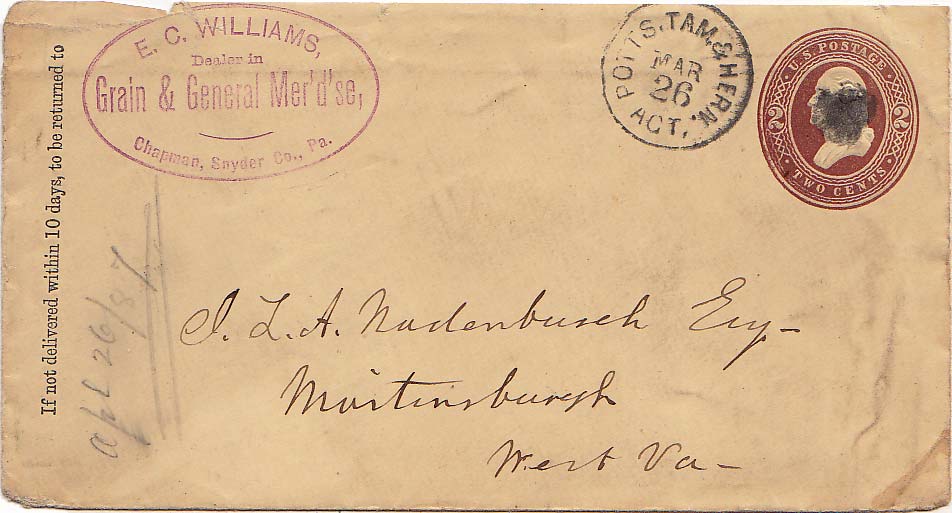 If not delivered within 10 days, to be returned to
E. C. WILLIAMS,
Dealer in
Grain & General Mer'd'se,
Chapman, Snyder Co., Pa.
POTTS, TAM. & HERN.
MAR
26
ACT.
U.S. POSTAGE
2 2
TWO CENTS
Apl 26/87
J. L. A. Nadenbusch Esq-
Martinsburgh
West Va-